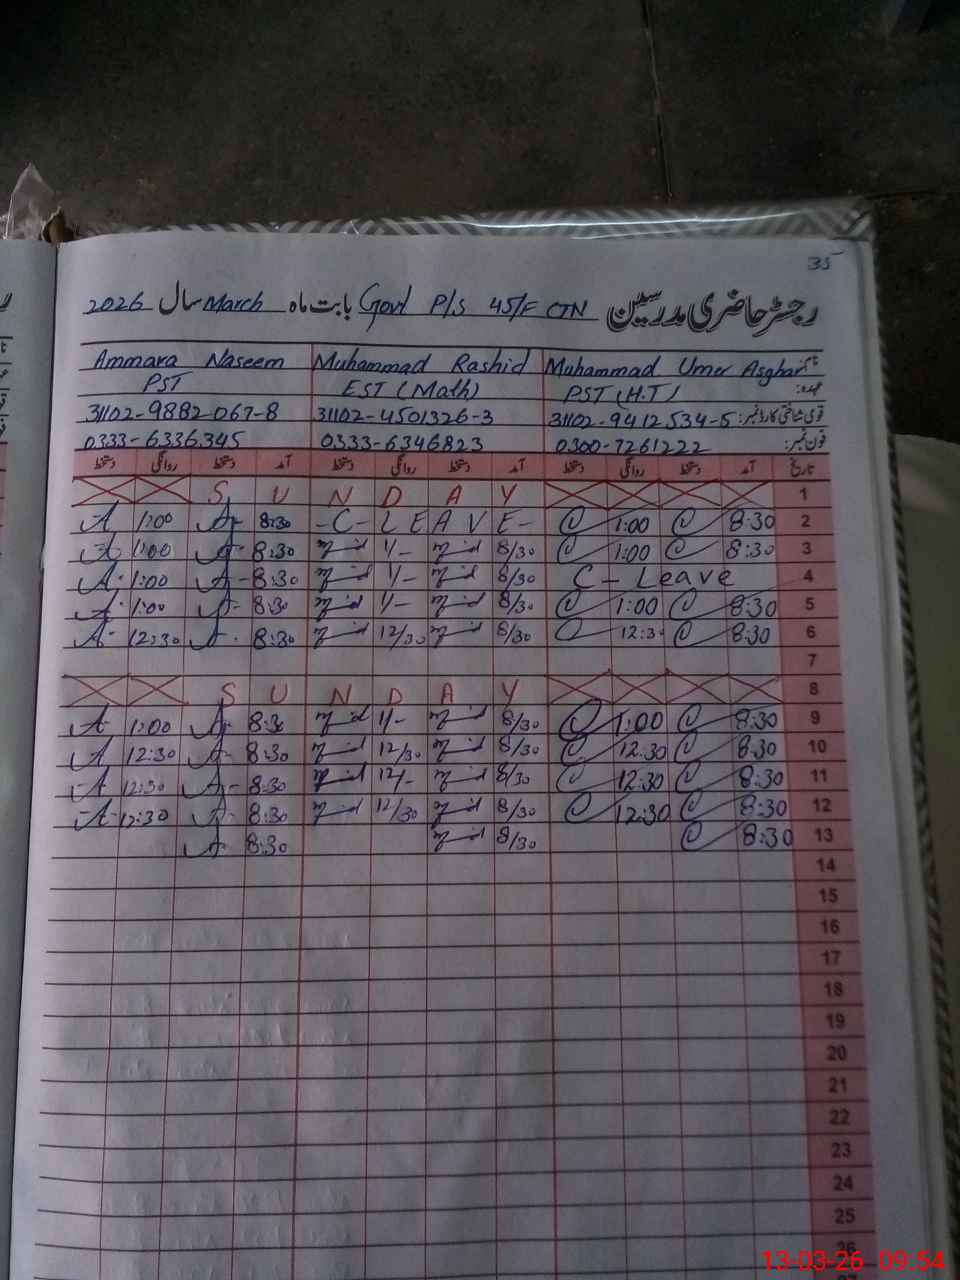 35
رجسٹر حاضری مدرسین Govt P/S 45/F CTN بابت ماہ March سال 2026
Ammara Naseem Muhammad Rashid Muhammad Umer Asghar نام:
PST EST (Math) PST (H.T) عہدہ:
31102-9882067-8 31102-4501326-3 31102-9412534-5 قومی شناختی کارڈ نمبر:
0333-6336345 0333-6346823 0300-7261222 فون نمبر:
دستخط روانگی دستخط آمد دستخط روانگی دستخط آمد دستخط روانگی دستخط آمد تاریخ
S U N D A Y 1
A 1:00 A 8:30 -C- LEAVE- 1:00 8:30 2
A 1:00 A 8:30 1/- 8/30 1:00 8:30 3
A 1:00 A 8:30 1/- 8/30 C - Leave 4
A 1:00 A 8:30 1/- 8/30 1:00 8:30 5
A 12:30 A 8:30 12/30 8/30 12:30 8:30 6
7
S U N D A Y 8
A 1:00 A 8:30 1/- 8/30 1:00 8:30 9
A 12:30 A 8:30 12/30 8/30 12:30 8:30 10
A 12:30 A 8:30 12/- 8/30 12:30 8:30 11
A 12:30 A 8:30 12/30 8/30 12:30 8:30 12
A 8:30 8/30 8:30 13
14
15
16
17
18
19
20
21
22
23
24
25
26
13-03-26 09:54